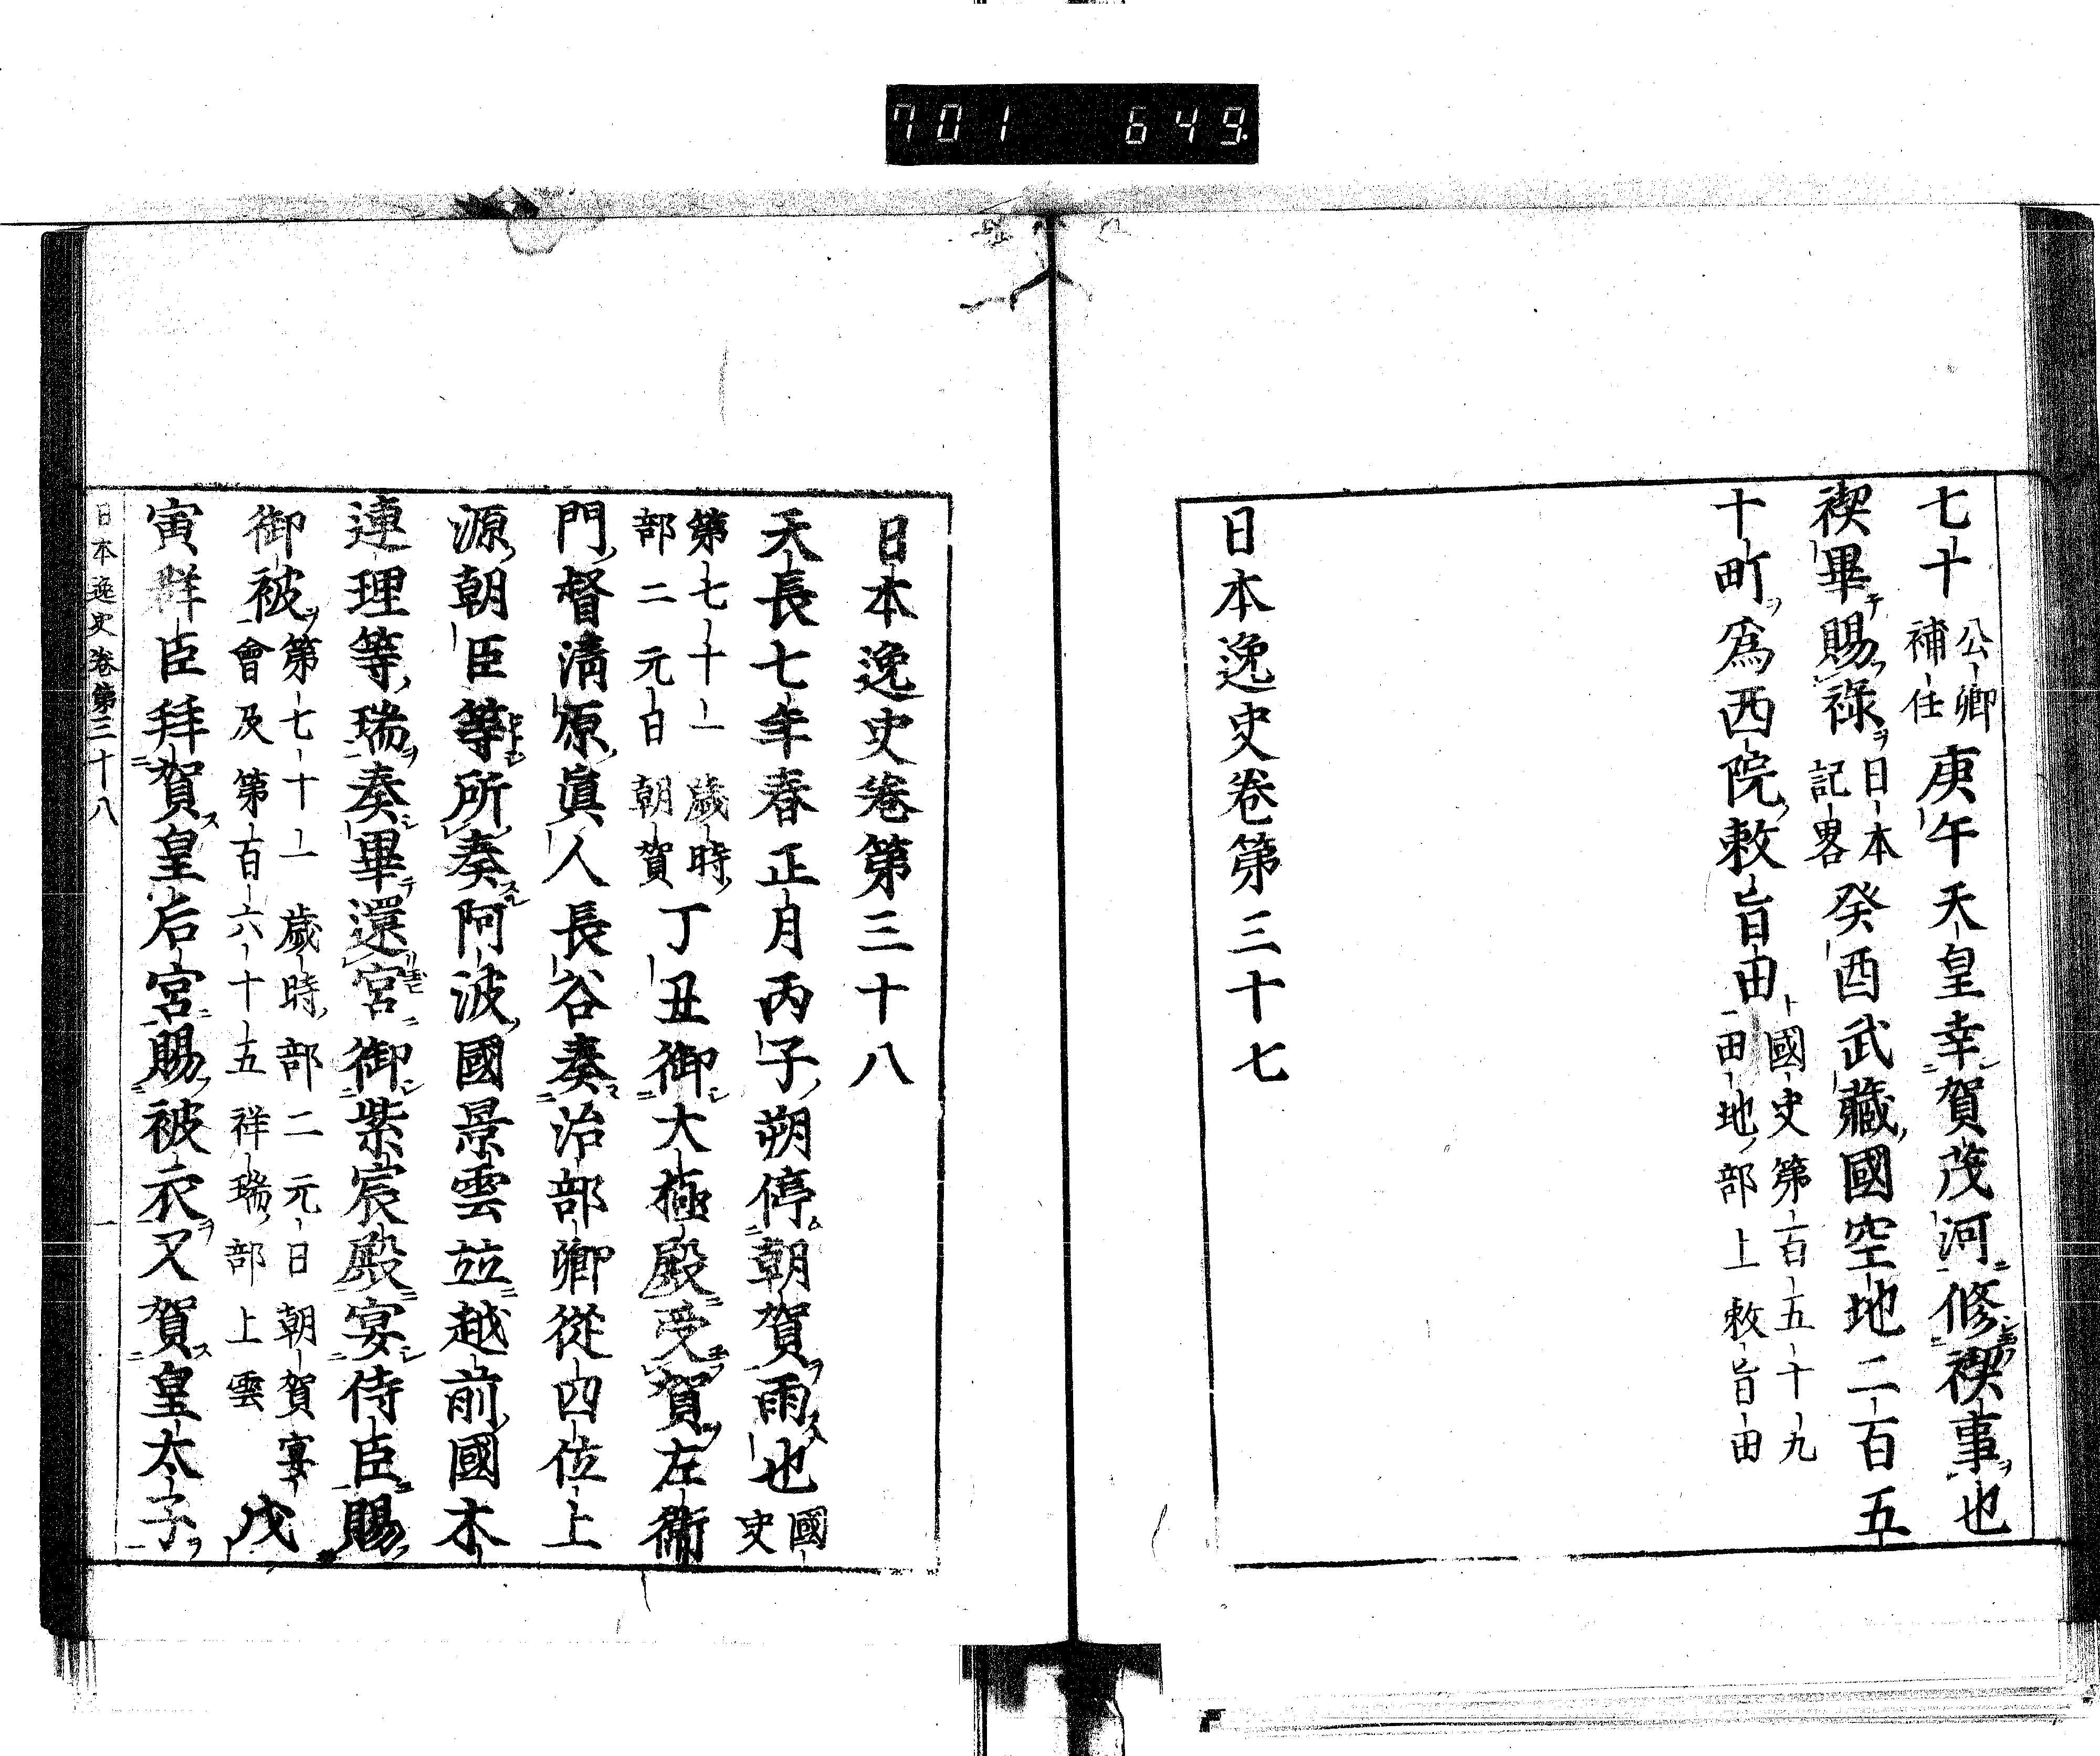 701 649
七十公卿補任庚午天皇幸賀茂河修禊事也
禊畢賜祿日本記畧癸酉武藏國空地二百五
十町爲西院敕旨田國史第百五十九田地部上敕旨田
日本逸史卷第三十七
日本逸史卷第三十八
天長七年春正月丙子朔停朝賀雨也國史
第七十一歲時部二元日朝賀丁丑御大極殿受賀左衞
門督淸原眞人長谷奏治部卿從四位上
源朝臣等所奏阿波國景雲並越前國木
連理等瑞奏畢還宮御紫宸殿宴侍臣賜
御被第七十一歲時部二元日朝賀宴會及第百六十五祥瑞部上雲戊
寅群臣拜賀皇后宮賜被衣又賀皇太子
日本逸史卷第三十八 一